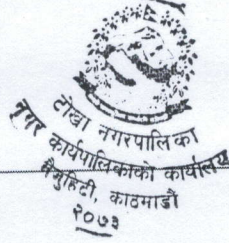 टोखा नगरपालिका
नगर कार्यपालिकाको कार्यालय
काठमाडौं
२०७३